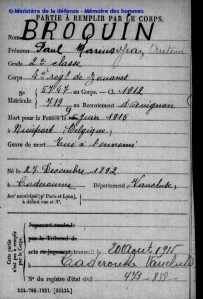 © Ministère de la défense - Mémoire des hommes
PARTIE À REMPLIR PAR LE CORPS.
BROQUIN
Prénoms Paul Marius Jean
Grade 2e classe
Corps 4e régt de Zouaves
No Matricule. 5747 au Corps. — Cl. 1912
719 au Recrutement Avignon
Mort pour la France le Juin 1915
à Nieuport Belgique
Genre de mort Tué à l'ennemi
Né le 27 Décembre 1892
à Caderousse Département Vaucluse
Arr' municipal (p' Paris et Lyon), à défaut rue et No.
Cette partie n'est pas à remplir par le Corps.
Jugement rendu le
par le Tribunal de
acte ou jugement transcrit le 20 Août 1915
à Caderousse Vaucluse
No du registre d'état civil 473-258
534-708-1921. [26434.]